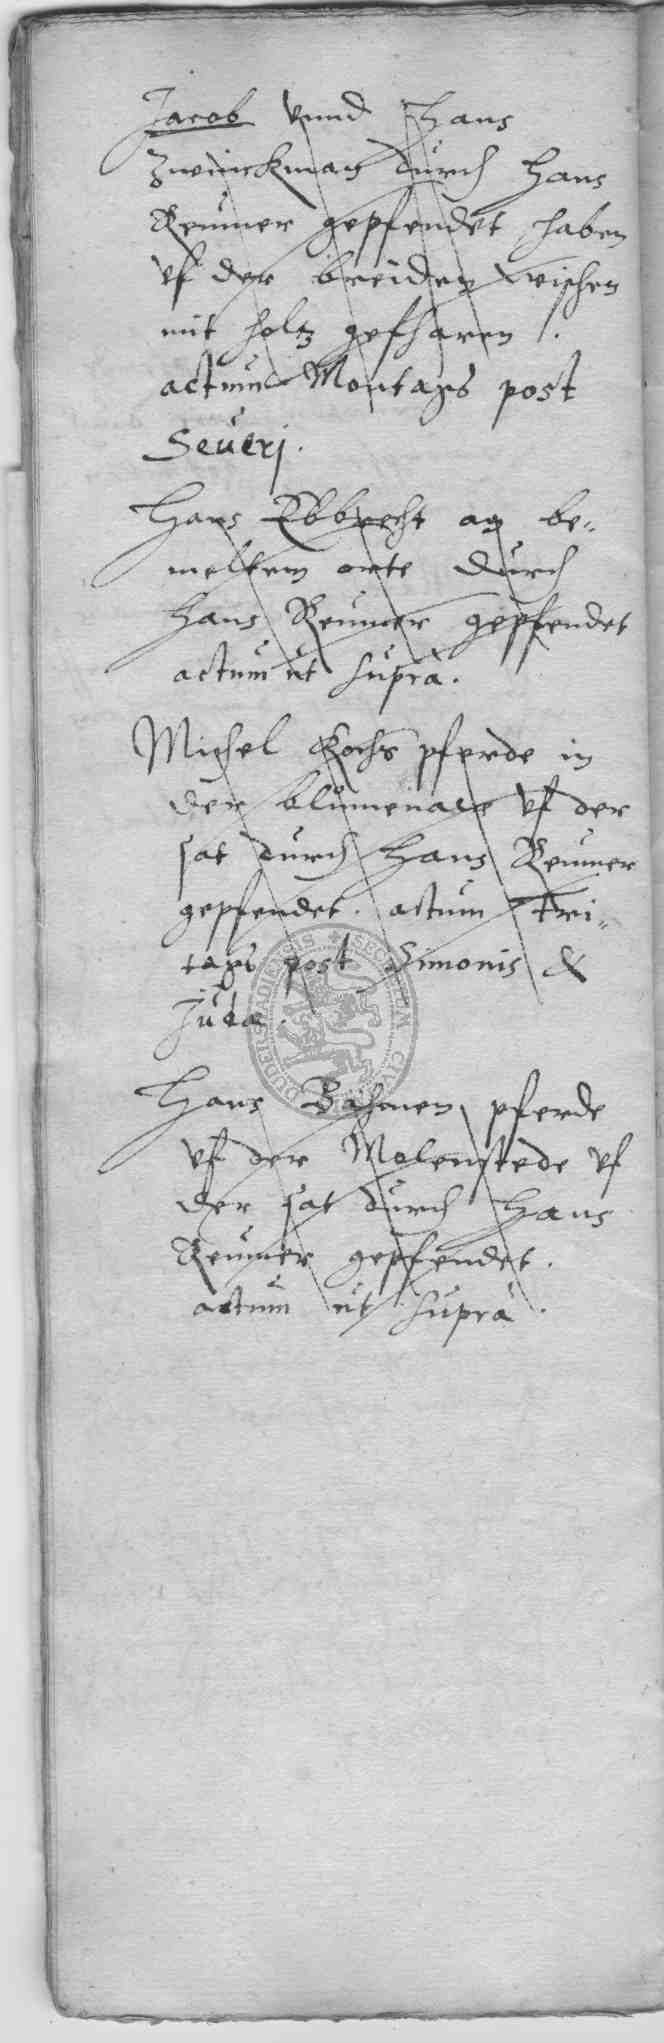 Jacob vnnd Hans
Zwinckman durch Hans
Reumer gepfendet haben
vf der breiden wischen
mit holtz gefharen.
actum Montags post
Severj.
Hans Ebbrecht an be-
meltem orte durch
Hans Reumer gepfendet
actum ut supra.
Michel Kochs pferde in
der blumenawe vf der
sat durch Hans Reumer
gepfendet. actum Fri-
tags post Simonis &
Judæ.
Hans pferde
vf der Molenstede vf
der sat durch Hans
Reumer gepfendet.
actum ut supra.
SECRETUM CIVI DUDERSTADIENSIS